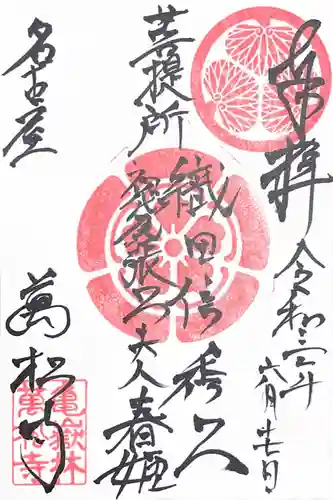 奉拝
令和三年
六月廿七日
菩提所
織田信秀公
尾張公夫人 春姫
名古屋
萬松寺
亀嶽林
萬松寺